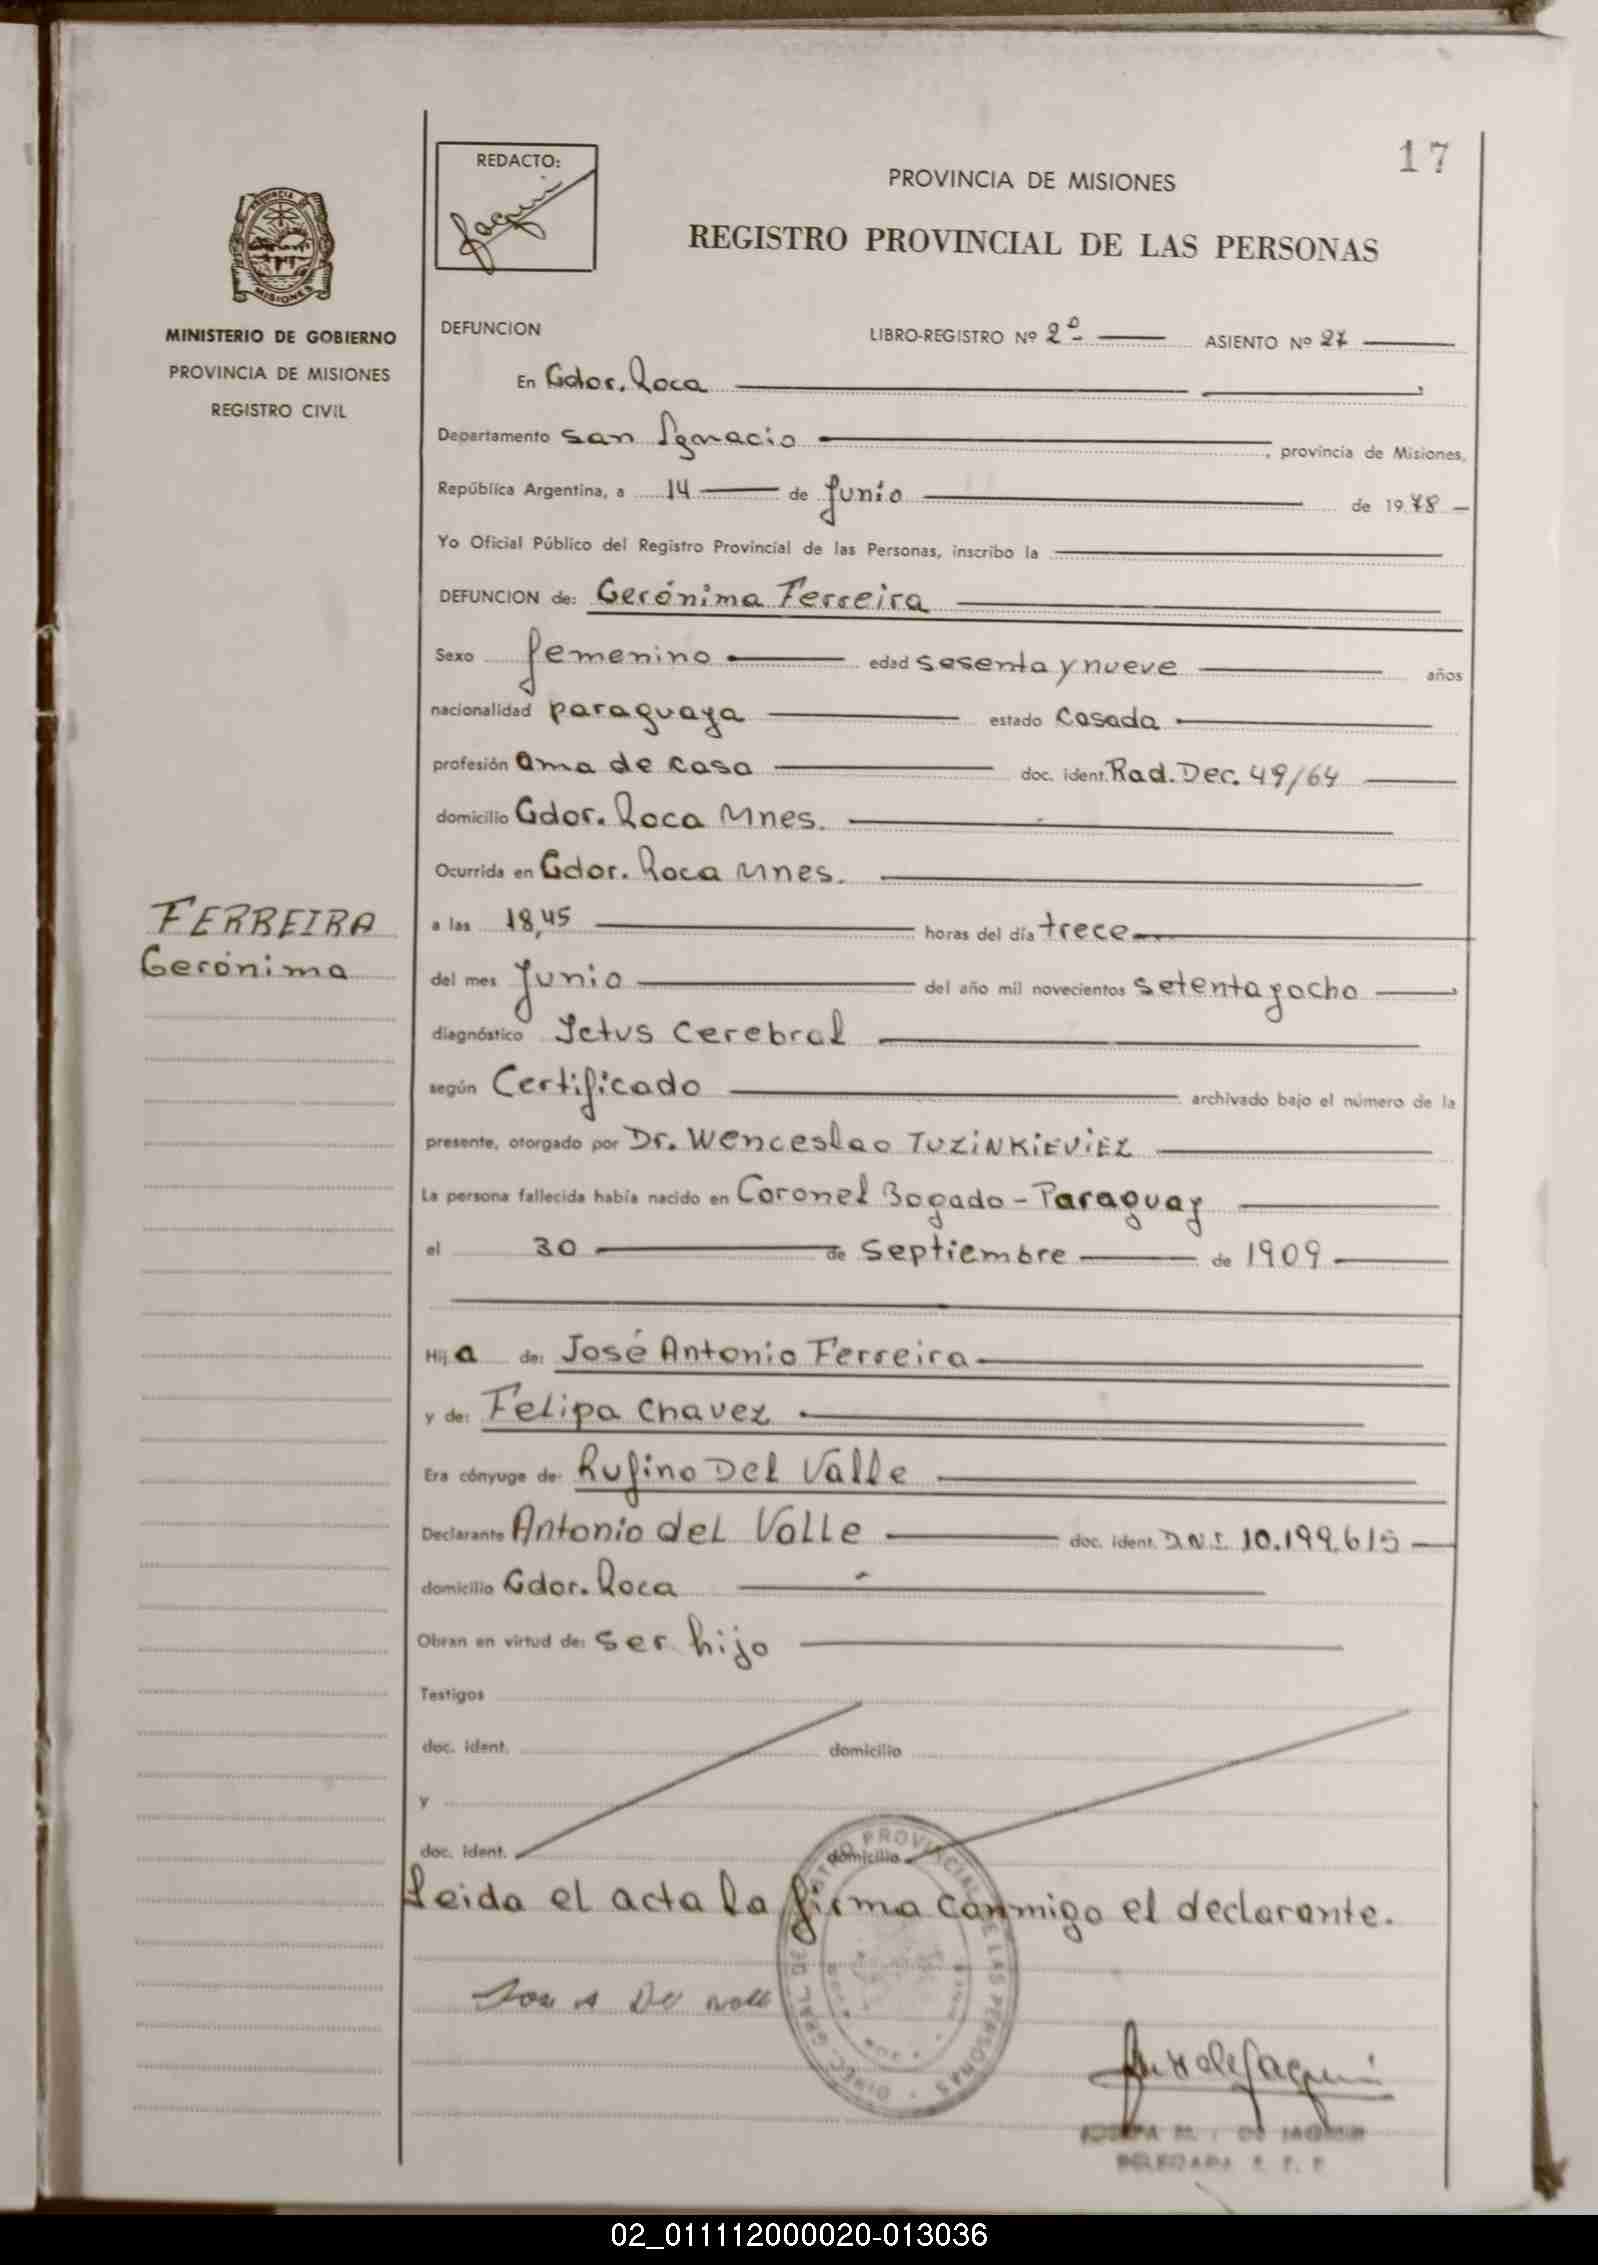 17
REDACTO:
PROVINCIA DE MISIONES
REGISTRO PROVINCIAL DE LAS PERSONAS
PROVINCIA DE
MISIONES
MINISTERIO DE GOBIERNO
PROVINCIA DE MISIONES
REGISTRO CIVIL
DEFUNCION LIBRO-REGISTRO Nº 2º ASIENTO Nº 27
En Gdor. Roca
Departamento San Ignacio, provincia de Misiones,
República Argentina, a 14 de Junio de 1978
Yo Oficial Público del Registro Provincial de las Personas, inscribo la
DEFUNCION de: Gerónima Ferreira
Sexo femenino edad sesenta y nueve años
nacionalidad paraguaya estado casada
profesión ama de casa doc. ident. Rad. Dec. 49/64
domicilio Gdor. Roca Mnes.
Ocurrida en Gdor. Roca Mnes.
FERREIRA
Gerónima
a las 18,45 horas del día trece
del mes Junio del año mil novecientos setenta y ocho
diagnóstico Ictus Cerebral
según Certificado archivado bajo el número de la
presente, otorgado por Dr. Wenceslao TUZINKIEVIEZ
La persona fallecida había nacido en Coronel Bogado - Paraguay
el 30 de Septiembre de 1909
Hija de: José Antonio Ferreira
y de: Felipa Chavez
Era cónyuge de: Rufino Del Valle
Declarante Antonio del Valle doc. ident. D.N.I. 10.199.615
domicilio Gdor. Roca
Obran en virtud de: ser hijo
Testigos
doc. ident. domicilio
y
doc. ident. domicilio
Leida el acta la firma conmigo el declarante.
DIREC. GRAL. DE REGISTRO PROVINCIAL DE LAS PERSONAS
02_011112000020-013036